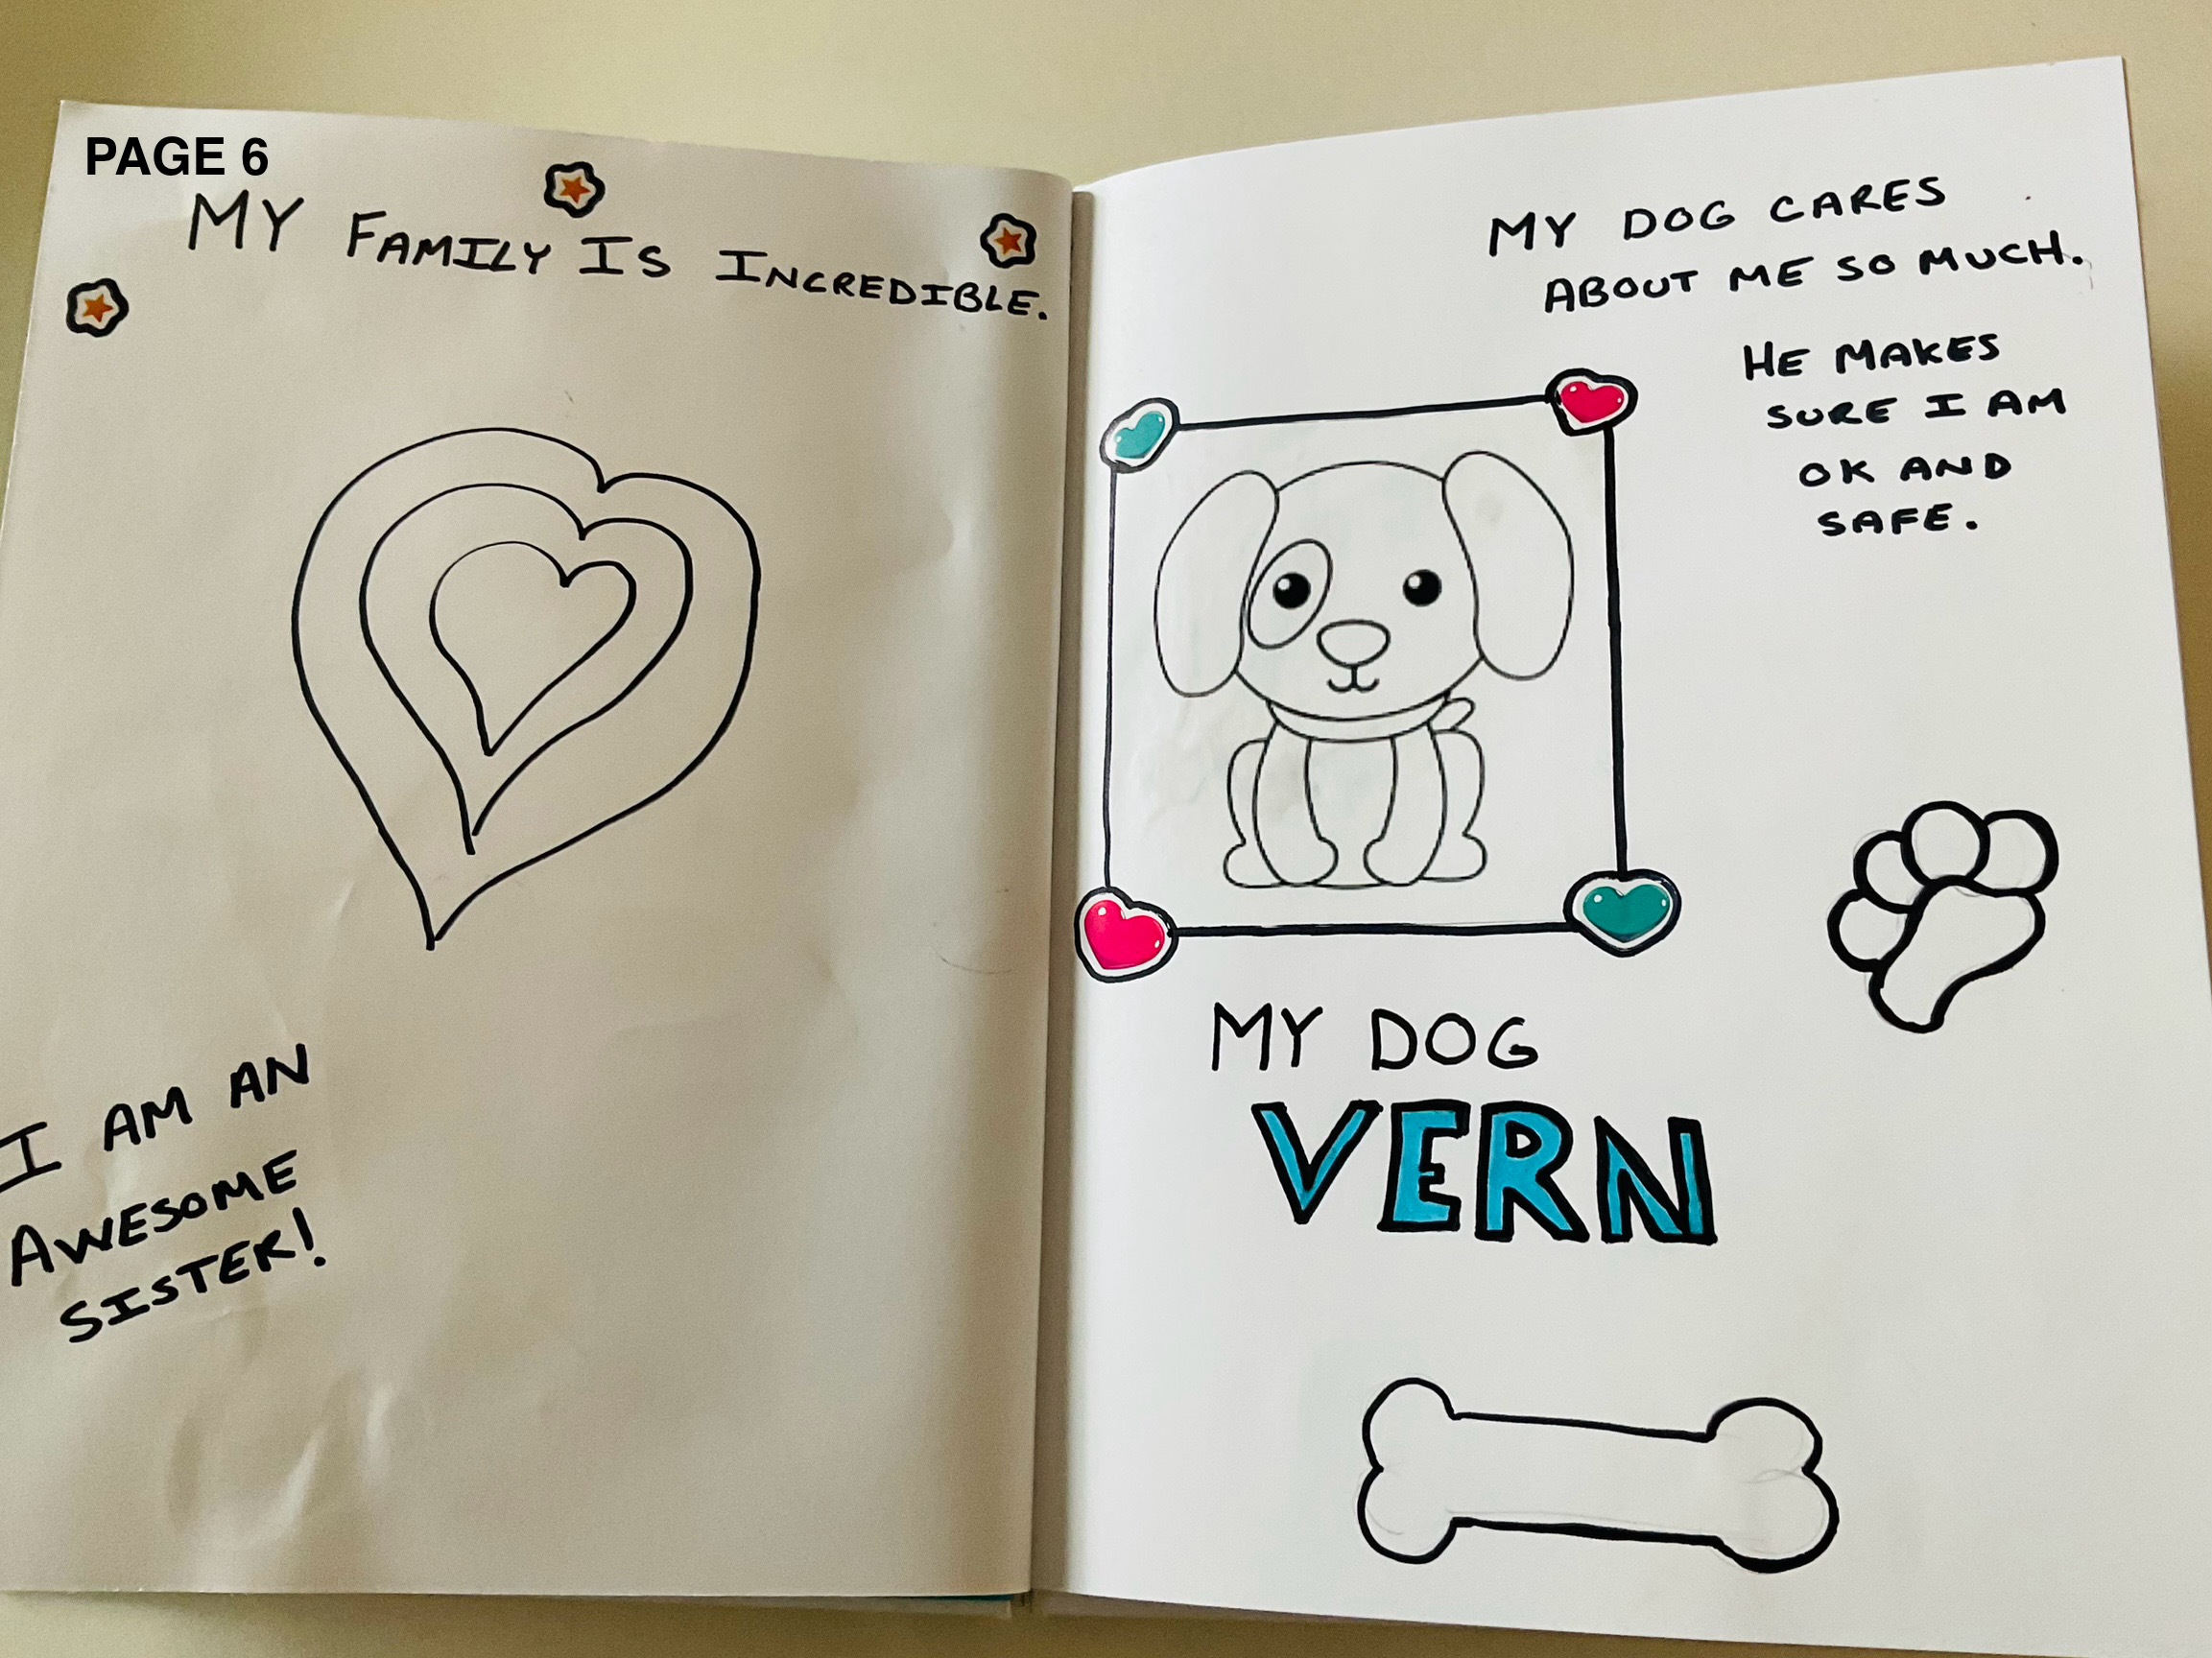 PAGE 6
MY FAMILY IS INCREDIBLE.
I AM AN
AWESOME
SISTER!
MY DOG CARES
ABOUT ME SO MUCH.
HE MAKES
SURE I AM
OK AND
SAFE.
MY DOG
VERN